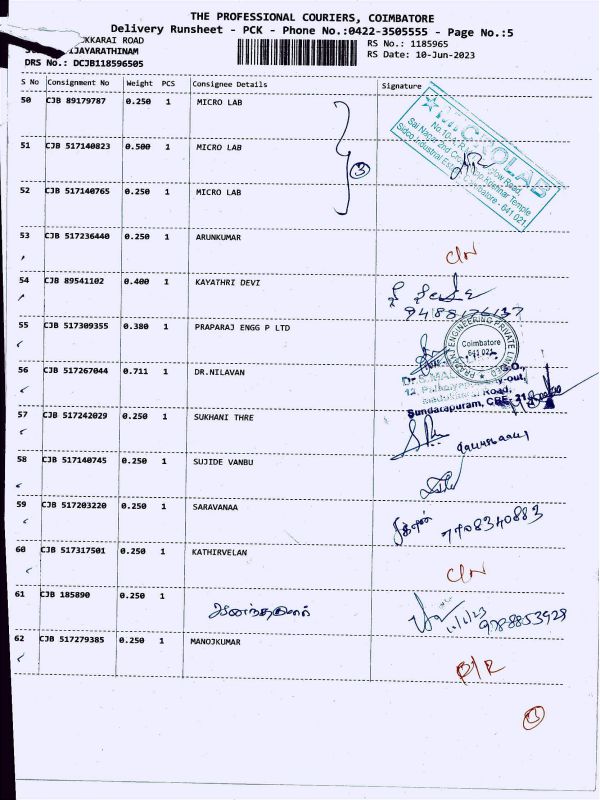 THE PROFESSIONAL COURIERS, COIMBATORE
Delivery Runsheet - PCK - Phone No.:0422-3505555 - Page No.:5
UKKARAI ROAD
IJAYARATHINAM
DRS No.: DCJB118596505
RS No.: 1185965
RS Date: 10-Jun-2023
S No Consignment No Weight PCS Consignee Details Signature
50 CJB 89179787 0.250 1 MICRO LAB
51 CJB 517140823 0.500 1 MICRO LAB
52 CJB 517140765 0.250 1 MICRO LAB
3
MICROLAB
Sidco Industrial Estate, Coimbatore - 641 021
53 CJB 517236440 0.250 1 ARUNKUMAR
54 CJB 89541102 0.400 1 KAYATHRI DEVI
55 CJB 517309355 0.380 1 PRAPARAJ ENGG P LTD
ENGINEERING PRIVATE LIMITED
Coimbatore
641 021
56 CJB 517267044 0.711 1 DR.NILAVAN
Road,
Sundarapuram, CBE-
57 CJB 517242029 0.250 1 SUKHANI THRE
58 CJB 517140745 0.250 1 SUJIDE VANBU
59 CJB 517203220 0.250 1 SARAVANAA
7708340883
60 CJB 517317501 0.250 1 KATHIRVELAN
61 CJB 185890 0.250 1
ஆனந்தகுமார்
62 CJB 517279385 0.250 1 MANOJKUMAR